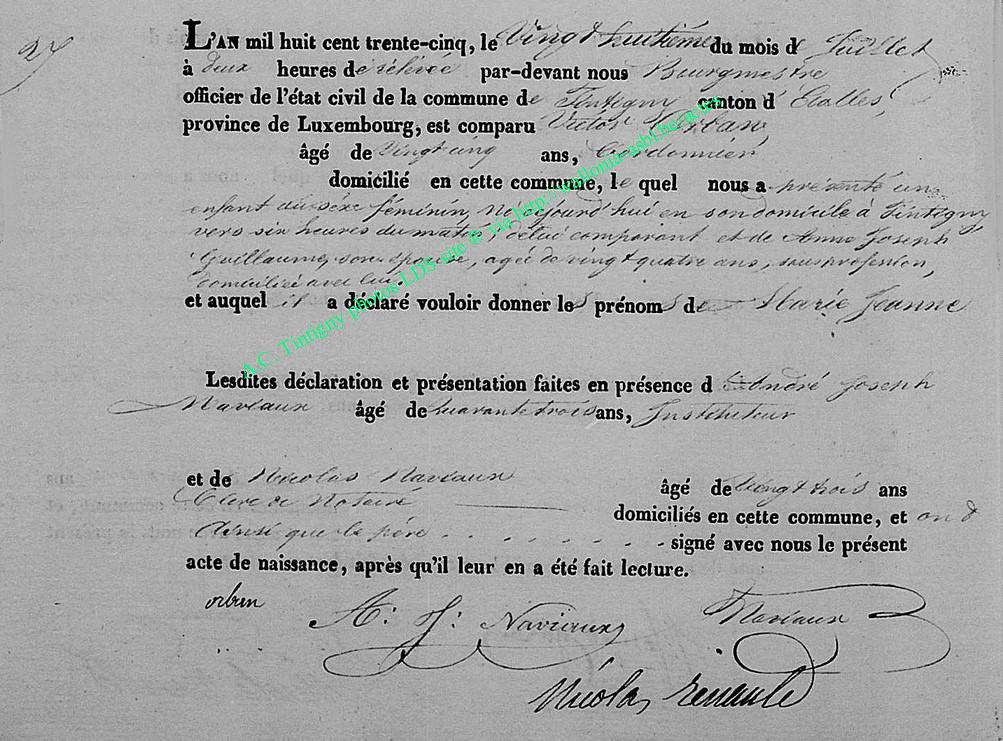 27
L'AN mil huit cent trente-cinq, le Vingt huitième du mois de Juillet
à deux heures de relevée par-devant nous Bourgmestre
officier de l'état civil de la commune de Tintigny canton d' Etalles,
province de Luxembourg, est comparu Victor Orban
âgé de vingt cinq ans, Cordonnier
domicilié en cette commune, le quel nous a présenté un
enfant du sexe féminin, né aujourd'hui en son domicile à Tintigny
vers six heures du matin, de lui comparant et de Anne Joseph
Guillaume, son épouse, agée de vingt quatre ans, sans profession,
domiciliée avec lui
et auquel il a déclaré vouloir donner les prénoms de Marie Jeanne
Lesdites déclaration et présentation faites en présence d'André Joseph
Naviaux âgé de quarante trois ans, Instituteur
et de Nicolas Naviaux âgé de vingt trois ans
Clerc de Notaire domiciliés en cette commune, et ont
Ainsi que le père . . . . . . . . signé avec nous le présent
acte de naissance, après qu'il leur en a été fait lecture.
orban A: J: Naviaux Naviaux
Nicolas Renauld
A.C. Tintigny photos LDS site © via http://wallonia-asbl.be/